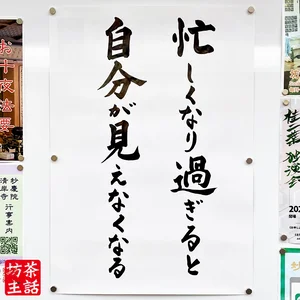 忙しくなり過ぎると
自分が見えなくなる
お十夜法要
妙慶院
清岸寺
行事案内
坊主
茶話